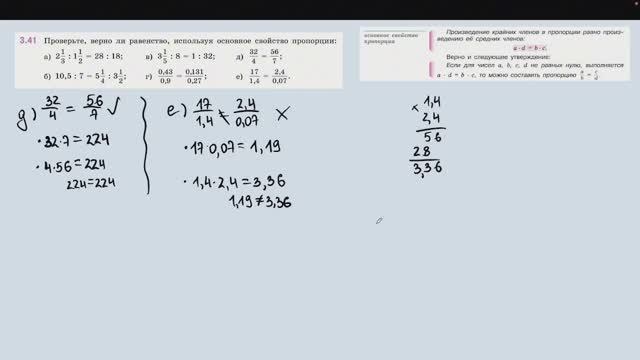 3.41 Проверьте, верно ли равенство, используя основное свойство пропорции:
а) 2 1/3 : 1 1/2 = 28 : 18; в) 3 1/5 : 8 = 1 : 32; д) 32/4 = 56/7;
б) 10,5 : 7 = 5 1/4 : 3 1/2; г) 0,43/0,9 = 0,131/0,27; е) 17/1,4 = 2,4/0,07.
основное свойство пропорции
Произведение крайних членов в пропорции равно произведению её средних членов:
a · d = b · c.
Верно и следующее утверждение:
Если для чисел a, b, c, d не равных нулю, выполняется
a · d = b · c, то можно составить пропорцию a/b = c/d
д) 32/4 = 56/7 ✓
• 32·7 = 224
• 4·56 = 224
224 = 224
е) 17/1,4 ≠ 2,4/0,07 ✗
• 17·0,07 = 1,19
• 1,4·2,4 = 3,36
1,19 ≠ 3,36
× 1,4
2,4
56
28
3,36